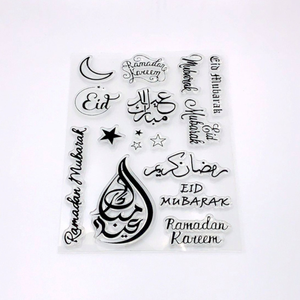 Ramadan
Kareem
Eid Mubarak
Mubarak
Eid
عيد
مبارك
Eid
Mubarak
Ramadan Mubarak
عيد مبارك
رمضان كريم
EID
MUBARAK
Ramadan
Kareem